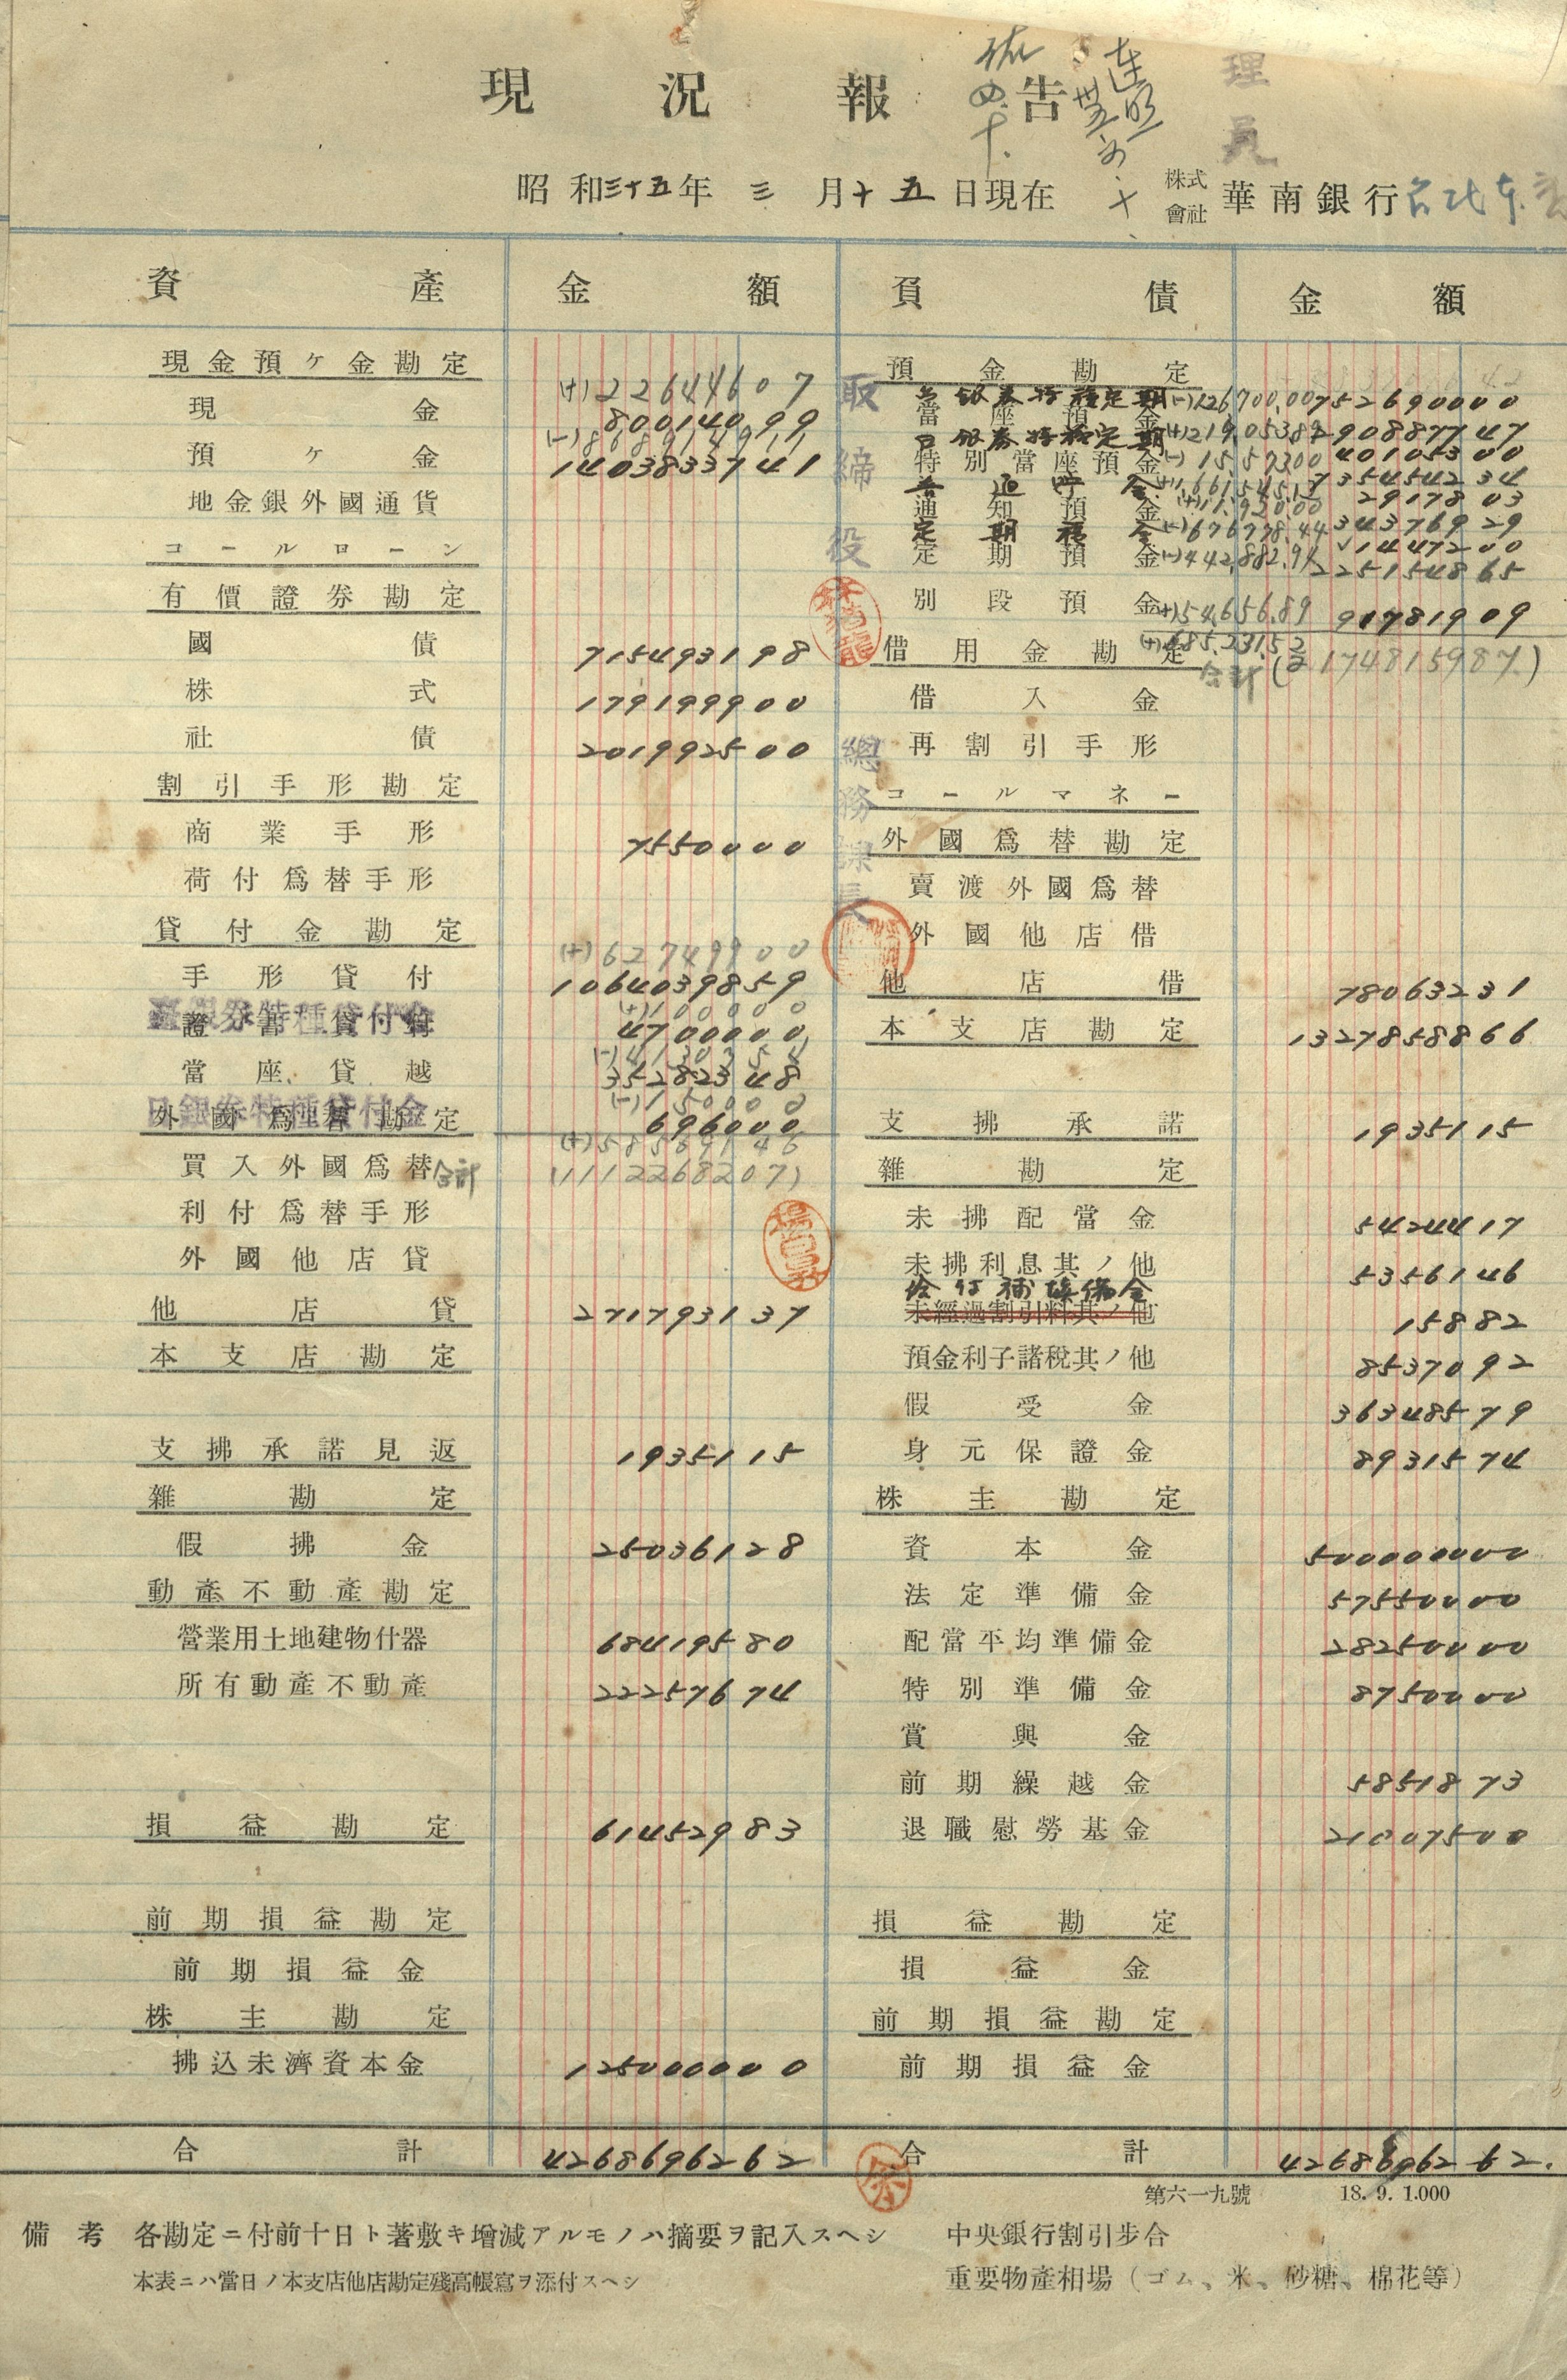 現況報告
理員
昭和三十五年三月十五日現在
株式會社華南銀行
資產 金額 負債 金額
現金預ケ金勘定
(+)22644607
現金 80014099
(-)86891491
預ケ金 1403833741
地金銀外國通貨
コールローン
有價證券勘定
國債 715493198
株式 179199900
社債 201992500
割引手形勘定
商業手形 7550000
荷付爲替手形
貸付金勘定
(+)62749900
手形貸付 1064039859
(+)100000
證書貸付 4700000
臺銀券特種貸付金
當座貸越 35282348
(-)150000
外國爲替勘定 696000
日銀券特種貸付金
(+)58569146
買入外國爲替 合計 (1112268207)
利付爲替手形
外國他店貸
他店貸 271793137
本支店勘定
支拂承諾見返 1935115
雜勘定
假拂金 25036128
動產不動產勘定
營業用土地建物什器 68419580
所有動產不動產 22257674
損益勘定 61452983
前期損益勘定
前期損益金
株主勘定
拂込未濟資本金 125000000
合計 4268696262
取締役
總務課長
預金勘定
台銀券特種定期 (-)126,700.00 752690000
當座預金 290887747
日銀券特種定期
特別當座預金 (-)15,573.00 40105300
普通貯金 735454234
通知預金 (+)11,920.00 2917803
定期積金 (-)676,778.44 34376929
定期預金 (-)442,882.94 1447200
225154865
別段預金 (+)54,656.89 91781909
借用金勘定 (+)685,231.52
合計 (2174815987)
借入金
再割引手形
コールマネー
外國爲替勘定
賣渡外國爲替
外國他店借
他店借 78063231
本支店勘定 1327858866
支拂承諾 1935115
雜勘定
未拂配當金 5424417
未拂利息其ノ他 5356146
未經過割引料其ノ他 15882
預金利子諸稅其ノ他 8537092
假受金 36348579
身元保證金 8931574
株主勘定
資本金 500000000
法定準備金 57550000
配當平均準備金 28250000
特別準備金 8750000
賞與金
前期繰越金 5851873
退職慰勞基金 21007500
損益勘定
損益金
前期損益勘定
前期損益金
合計 4268696262.
第六一九號 18. 9. 1.000
備考 各勘定ニ付前十日ト著敷キ增減アルモノハ摘要ヲ記入スヘシ
本表ニハ當日ノ本支店他店勘定殘高帳寫ヲ添付スヘシ
中央銀行割引步合
重要物產相場（ゴム、米、砂糖、棉花等）